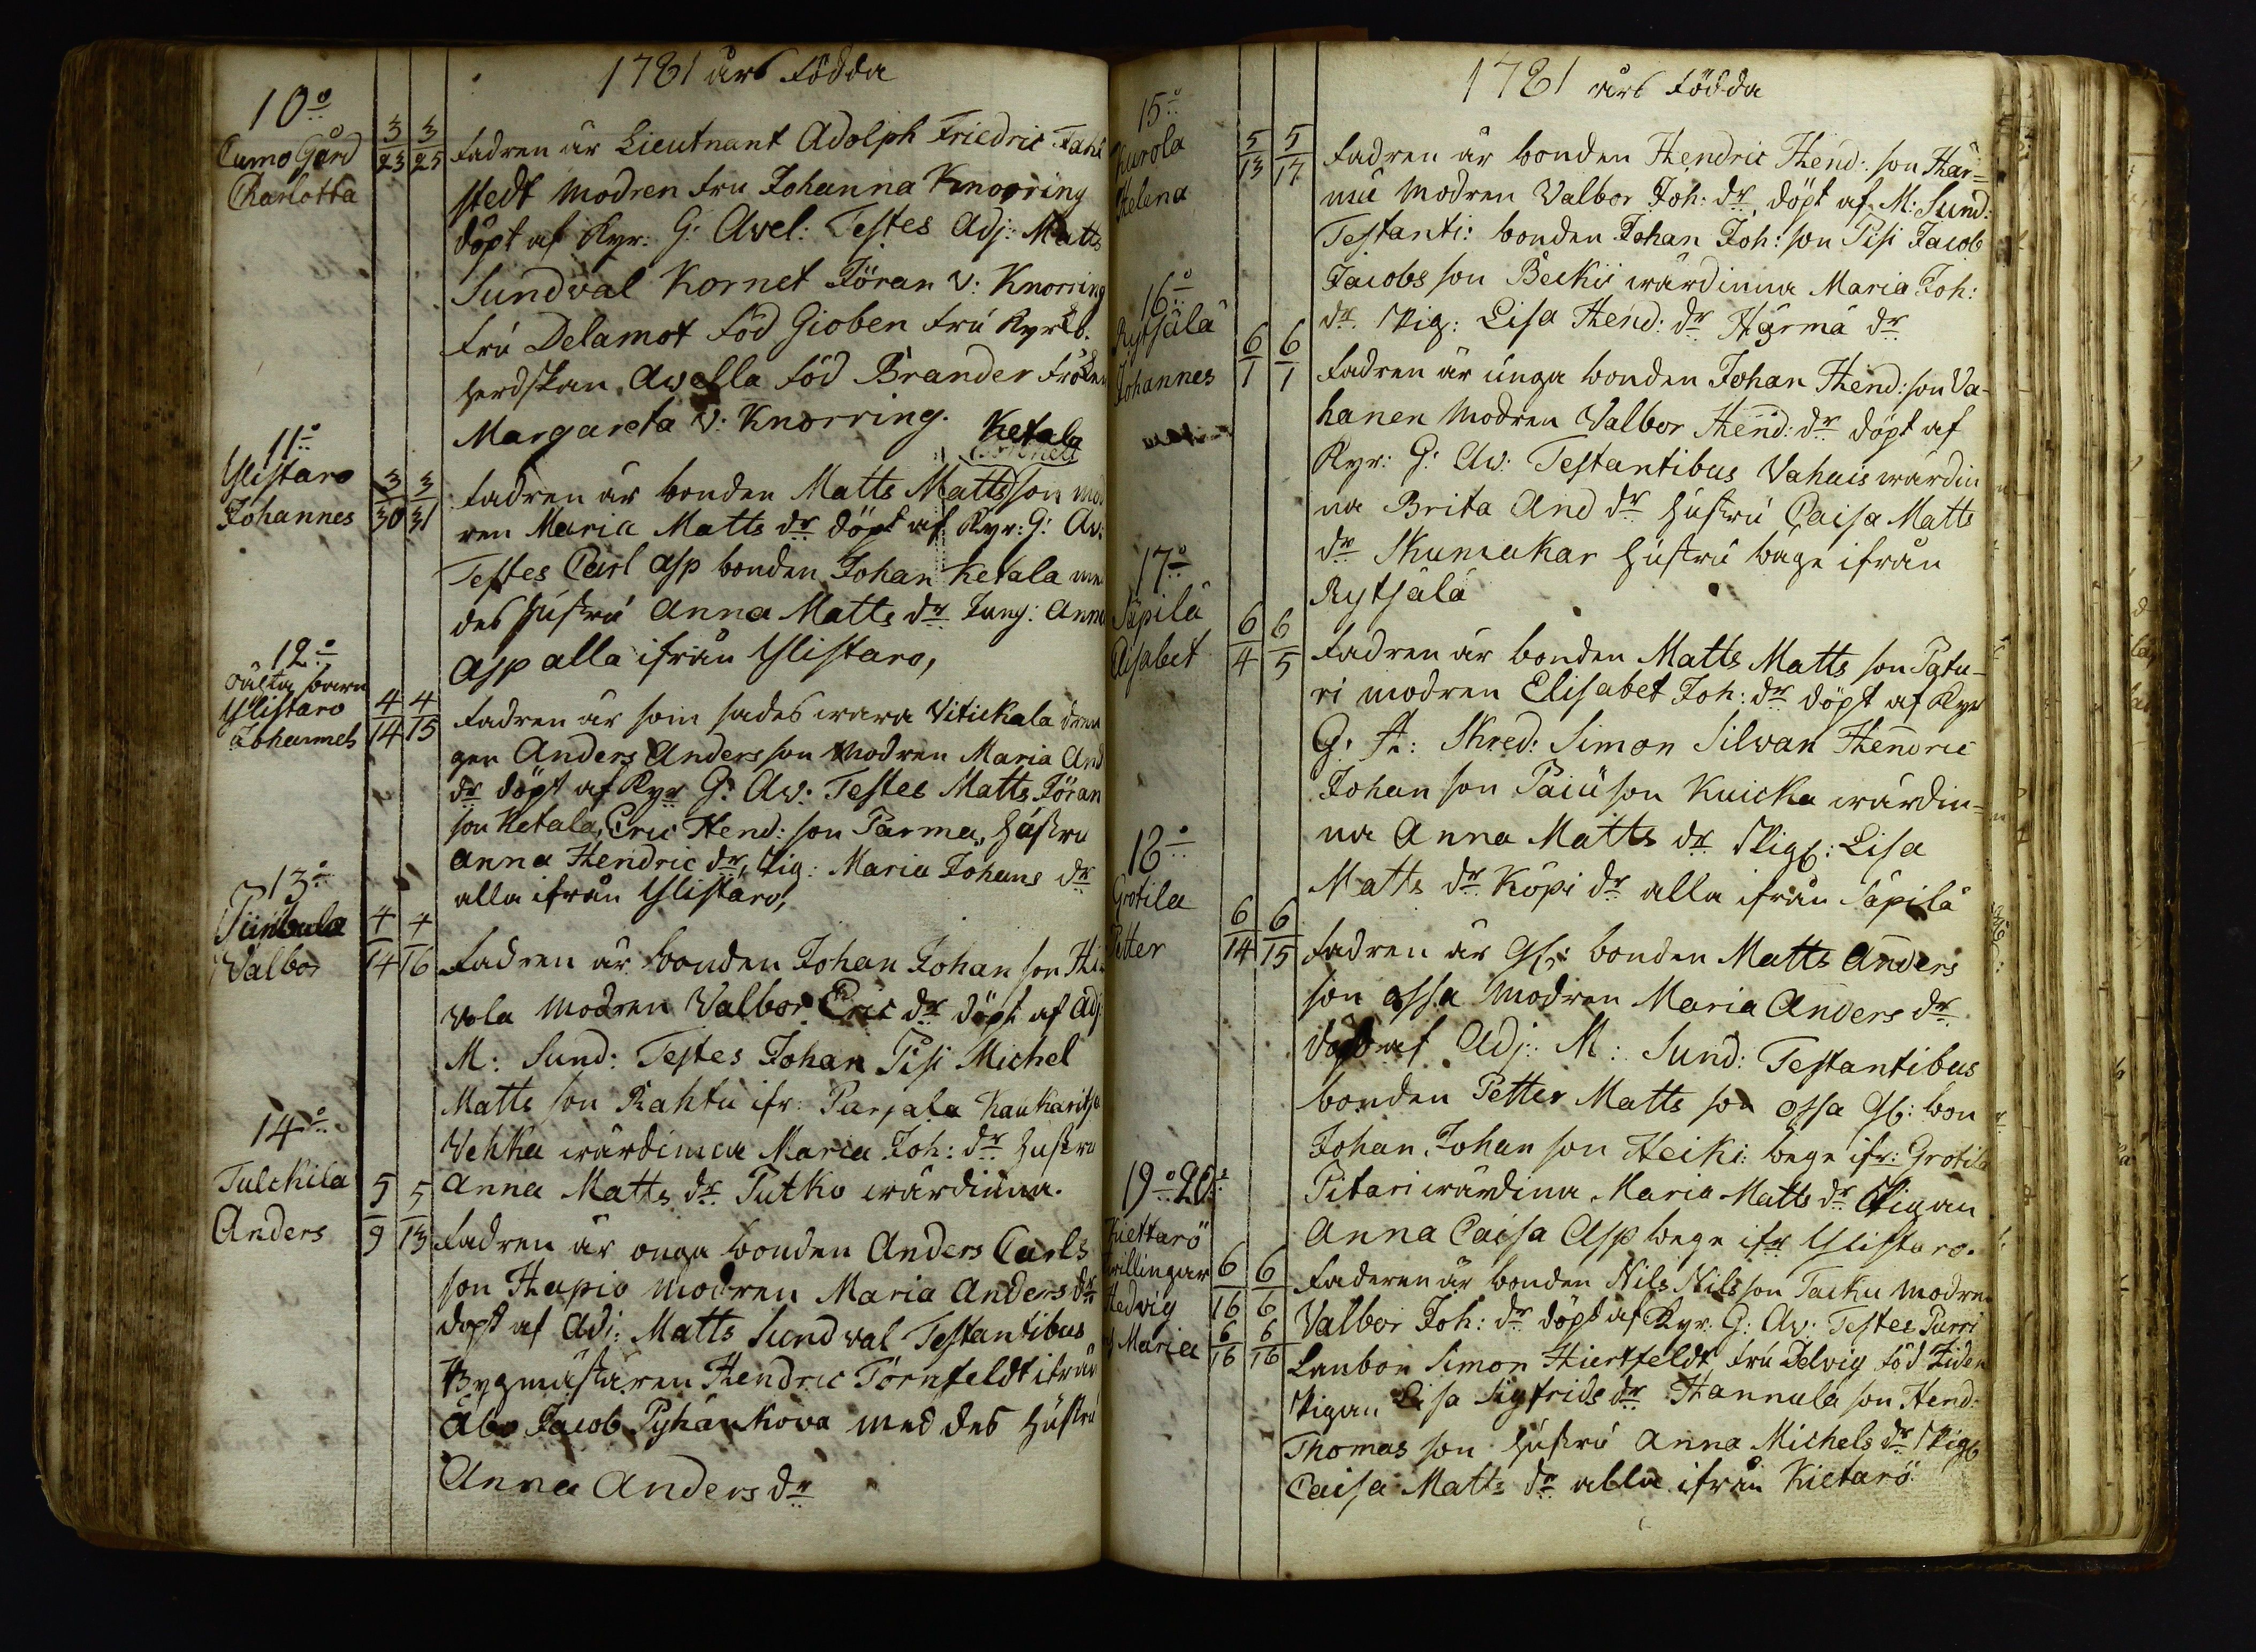 1781 års Födda
10o
Cumo Gård
Charlotta
3/23 3/25
Fadren är Lieutnant Adolph Friedric Fahl
stedt Modren Fru Johanna Knorring
döpt af Kyr: G: Avel: Testes Adj: Matts
Sundval Kornet Jöran v: Knorring
Fru Delamot Föd Gioben Fru Kyrkb.
herdskan Avella Föd Brander Fröken
Margareta v: Knorring.
Ketala
11o
Ylistaro
Johannes
3/30 3/31
Fadren är bonden Matts Mattsson mod
ren Maria Matts dr döpt af Kyr: G: Av:
Testes Carl Asp bonden Johan Ketala me
des hustru Anna Matts dr Jung: Anna
Asp alla ifrån Ylistaro,
12o
oächta barn
Ylistaro
Johannes
4/14 4/15
Fadren är som sades wara Vitickala dren
gen Anders Andersson Modren Maria And
dr döpt af Kyr G: Av: Testes Matts Jöran
son Ketala, Eric Hend: son Parma, hustru
Anna Hendric dr, Pig: Maria Johans dr
alla ifrån Ylistaro,
13o
Valbor
4/14 4/16
Fadren är bonden Johan Johan son Hi
vola Modren Valbor Eric dr döpt af Adj
M: Sund: Testes Johan Pisi Michel
Matts son Rahtu ifr: Parjala Kaukaritsa
Vehka wärdinna Maria Joh: dr hustru
Anna Matts dr Putko wärdinna.
14o
Tulckila
Anders
5/9 5/13
Fadren är onga bonden Anders Carls
son Hapio Modren Maria Anders dr
döpt af Adj: Matts Sundval Testantibus
Bygmästaren Hendric Törnfeldt ifrån
Åbo Jacob Pyhänkova med des hustru
Anna Anders dr
1781 års Födda
15o
Kurola
Helena
5/13 5/17
Fadren är bonden Hendric Hend: son Här=
mä Modren Valbor Joh: dr, döpt af M: Sund:
Testanti: bonden Johan Joh: son Pisi Jacob
Jacobs son Beckis wärdinna Maria Joh:
dr Pig: Lisa Hend: dr Härmä dr
16o
Rytsälä
Johannes
6/1 6/1
Fadren är unga bonden Johan Hend: son Va-
hanen Modren Valbor Hend: dr döpt af
Kyr: G: Av: Testantibus Vahais wärdin
na Brita And dr hustru Caisa Matts
dr Skumakar hustru bäge ifrån
Rytsälä
17o
Säpilä
Elisabet
6/4 6/5
Fadren är bonden Matts Matts son Patu-
ri modren Elisabet Joh: dr döpt af Kyr
G: A: Skred: Simon Silvan Hendric
Johan son Paiu son Kuicka wärdin=
na Anna Matts dr Pig: Lisa
Matts dr Köpi dr alla ifrån Säpilä
18o
Grotila
Petter
6/14 6/15
Fadren är bonden Matts Anders
son ossa Modren Maria Anders dr
döpt af Adj: M: Sund: Testantibus
bonden Petter Matts son ossa bon
Johan Johan son Heiki: bege ifr: Grotila
Pitari wärdina Maria Matts dr Pigan
Anna Caisa Asp bege ifr Ylistaro.
19o 20o
Kiettarö
twillingar
Hedvig
Maria
6/16 6/6
6/16 6/16
Faderen är bonden Nils Nilsson Tacku Modren
Valbor Joh: dr döpt af Kyr: G: Av: Testes Purri
Lanbon Simon Hiertfeldt Fru Delvig Föd Ziden
Pigan Lisa Sigfrids dr Hannula son Hend:
Thomas son hustru Anna Michels dr Pig
Caisa Matts dr alla ifrån Kietarö